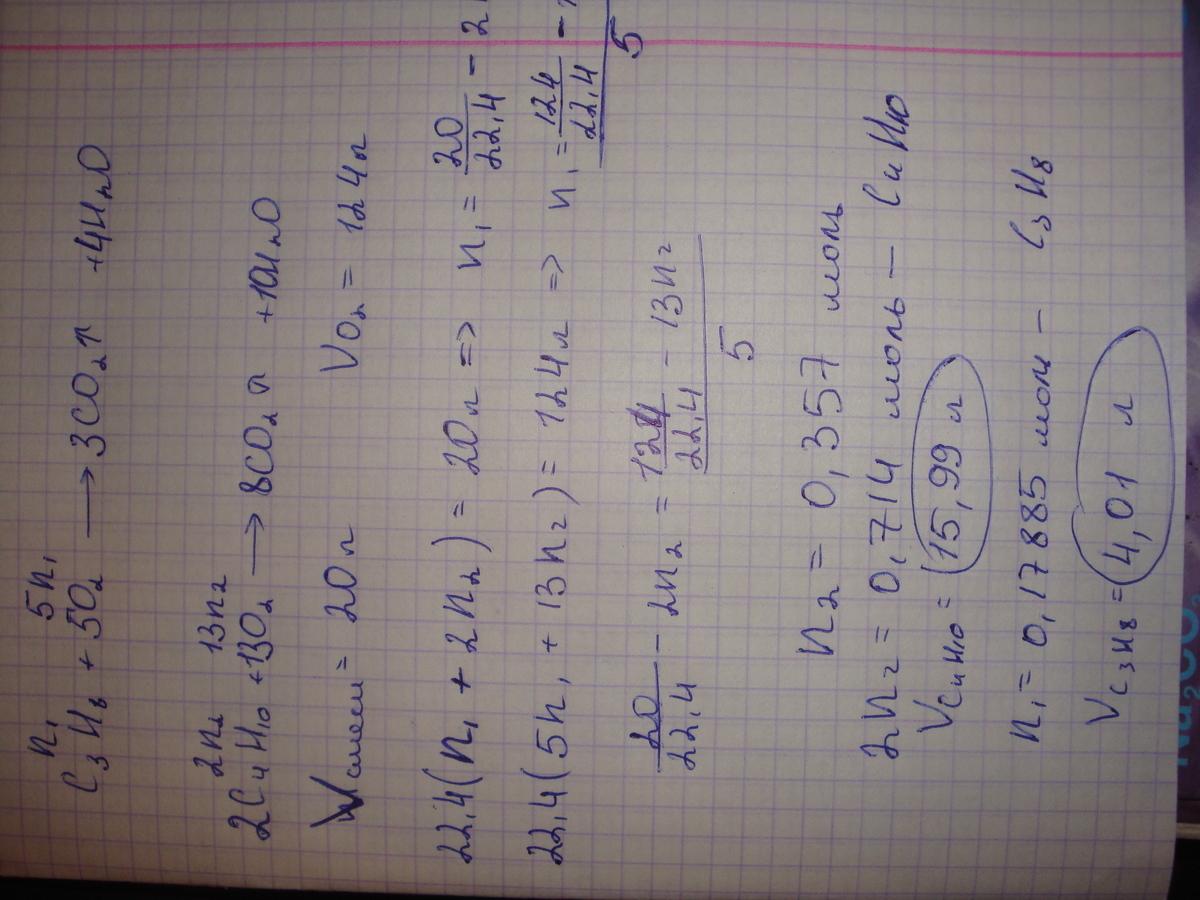 n₁ 5n₁
C₃H₈ + 5O₂ ⟶ 3CO₂↑ + 4H₂O
2n₂ 13n₂
2C₄H₁₀ + 13O₂ ⟶ 8CO₂↑ + 10H₂O
Vсмеси = 20л VO₂ = 124л
22,4(n₁ + 2n₂) = 20л => n₁ = 20/22,4 - 2
22,4(5n₁ + 13n₂) = 124л => n₁ = (124/22,4 -)/5
20/22,4 - 2n₂ = (124/22,4 - 13n₂)/5
n₂ = 0,357 моль
2n₂ = 0,714 моль — C₄H₁₀
VC₄H₁₀ = 15,99 л
n₁ = 0,17885 моль — C₃H₈
VC₃H₈ = 4,01 л
Na₂CO₃